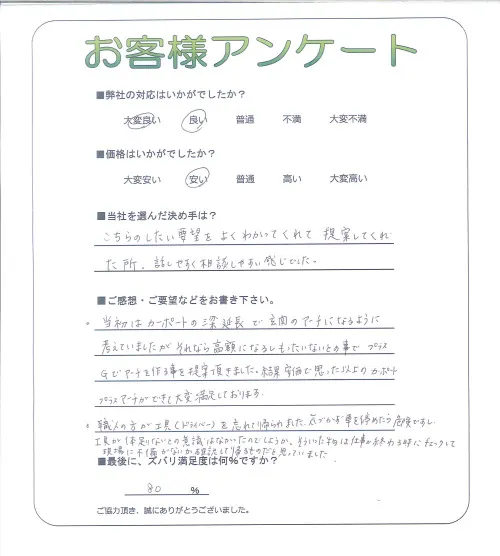 お客様アンケート
■弊社の対応はいかがでしたか？
大変良い 良い 普通 不満 大変不満
■価格はいかがでしたか？
大変安い 安い 普通 高い 大変高い
■当社を選んだ決め手は？
こちらのしたい要望をよくわかってくれて 提案してくれ
た所、話しやすく相談しやすい感じでした。
■ご感想・ご要望などをお書き下さい。
当初はカーポートの梁延長で玄関のアーチになるように
考えていましたが それなら高額になるしもったいないとの事で プラス
Gでアーチを作る事を提案頂きました。結果安価で思った以上のカーポート
プラスアーチができて大変満足しております。
職人の方が工具(ドライバー)を忘れて帰られました。気づかず車を停めたら危険ですし、
工具が1本足りないとの意識はなかったのでしょうか。そういった物は仕事が終わる時にチェックして
現場に不備がないか確認して帰るものだと思っていました
■最後に、ズバリ満足度は何%ですか？
80 %
ご協力頂き、誠にありがとうございました。